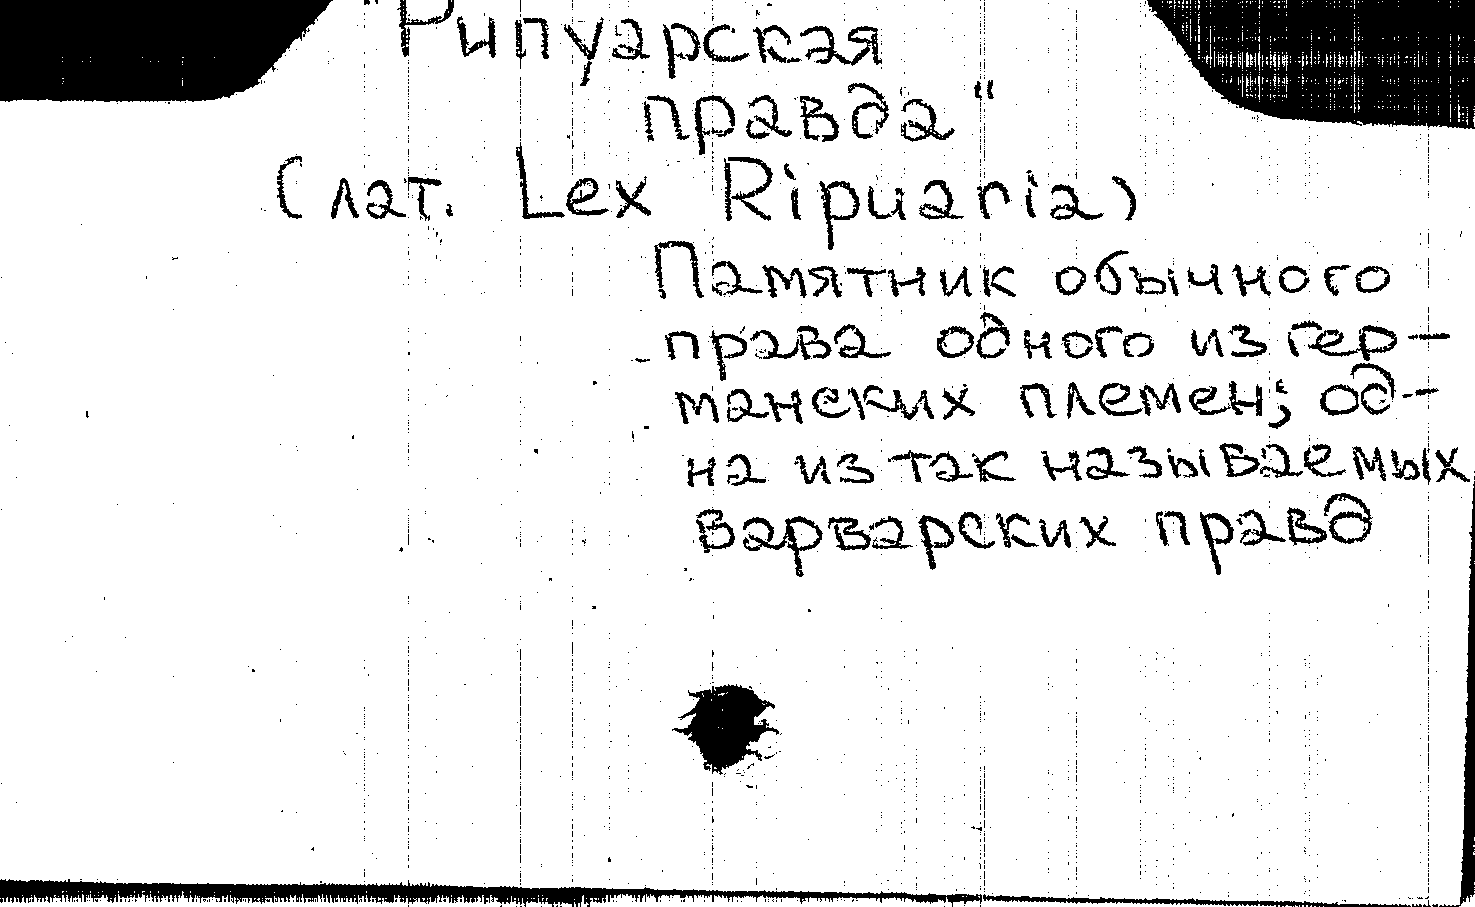 "Рипуарская
правда"
(лат. Lex Ripuaria)
Памятник обычного
права одного из гер-
манских племен; од-
на из так называемых
варварских правд